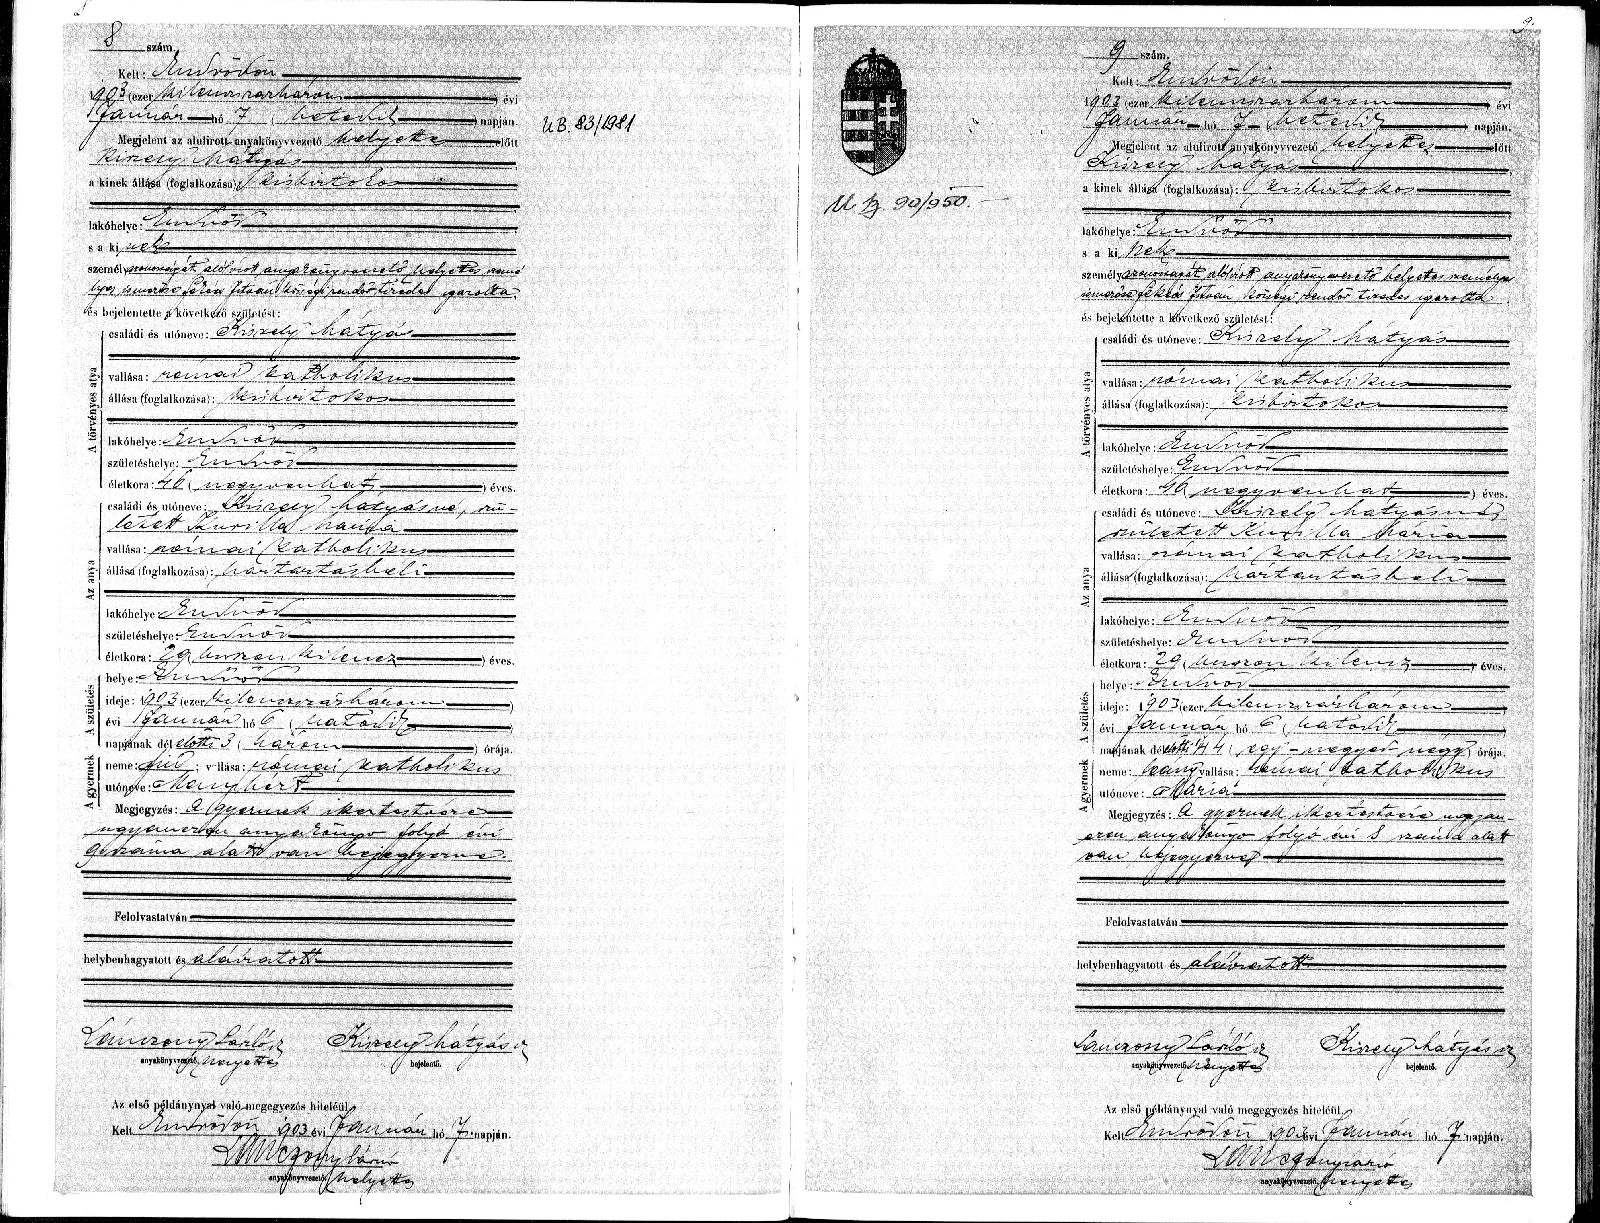 8 szám.
Kelt: Endrődön
1903 (ezer kilenczszázhárom) évi
Január hó 7 (hetedik) napján.
Megjelent az alulirott anyakönyvvezető helyettes előtt
Kiszely Mátyás
a kinek állása (foglalkozása): kisbirtokos
lakóhelye: Endrőd
s a ki nek
személyazonosságát alólirott anyakönyvvezető helyettes szemé
lyes ismerőse István községi rendőr tizedes igazolta.
és bejelentette a következő születést:
A törvényes atya
családi és utóneve: Kiszely Mátyás
vallása: római katholikus
állása (foglalkozása): kisbirtokos
lakóhelye: Endrőd
születéshelye: Endrőd
életkora: 46 (negyvenhat) éves.
Az anya
családi és utóneve: Kiszely Mátyásné, szü-
letett Kurilla Mária
vallása: római katholikus
állása (foglalkozása): háztartásbeli
lakóhelye: Endrőd
születéshelye: Endrőd
életkora: 29 (huszonkilencz) éves.
A születés
helye: Endrőd
ideje: 1903 (ezer kilenczszázhárom)
évi Január hó 6 (hatodik)
napjának dél előtti 3 (három) órája.
A gyermek
neme: fiú; vallása: római katholikus
utóneve:
Megjegyzés: A gyermek ikertestvére
ugyanezen anyakönyv folyó évi
9 száma alatt van bejegyezve.
Felolvastatván
helybenhagyatott és aláiratott
Lánczony László sk Kiszely Mátyás sk
anyakönyvvezető helyettes bejelentő.
Az első példánynyal való megegyezés hiteléül
Kelt Endrődön 1903 évi Január hó 7 napján.
Lánczony László
anyakönyvvezető helyettes
UB. 83/1981
9.
9 szám.
Kelt: Endrődön
1903 (ezer kilenczszázhárom) évi
Január hó 7 hetedik napján.
Megjelent az alulirott anyakönyvvezető helyettes előtt
Kiszely Mátyás
a kinek állása (foglalkozása): kisbirtokos
lakóhelye: Endrőd
s a ki nek
személyazonosságát alólirott anyakönyvvezető helyettes személyes
ismerőse István községi rendőr tizedes igazolta
és bejelentette a következő születést:
A törvényes atya
családi és utóneve: Kiszely Mátyás
vallása: római katholikus
állása (foglalkozása): kisbirtokos
lakóhelye: Endrőd
születéshelye: Endrőd
életkora: 46 (negyvenhat) éves.
Az anya
családi és utóneve: Kiszely Mátyásné
született Kurilla Mária
vallása: római katholikus
állása (foglalkozása): háztartásbeli
lakóhelye: Endrőd
születéshelye: Endrőd
életkora: 29 (huszonkilencz) éves.
A születés
helye: Endrőd
ideje: 1903 (ezer kilenczszázhárom)
évi Január hó 6 (hatodik)
napjának dél előtti 1/4 4 (egy-negyed négy) órája.
A gyermek
neme: leány vallása: római katholikus
utóneve: Mária
Megjegyzés: A gyermek ikertestvére ugyan-
ezen anyakönyv folyó évi 8 száma alatt
van bejegyezve
Felolvastatván
helybenhagyatott és aláiratott
Lánczony László sk Kiszely Mátyás sk
anyakönyvvezető helyettes bejelentő.
Az első példánynyal való megegyezés hiteléül
Kelt Endrődön 1903 évi Január hó 7 napján.
Lánczony László
anyakönyvvezető helyettes
90/950.